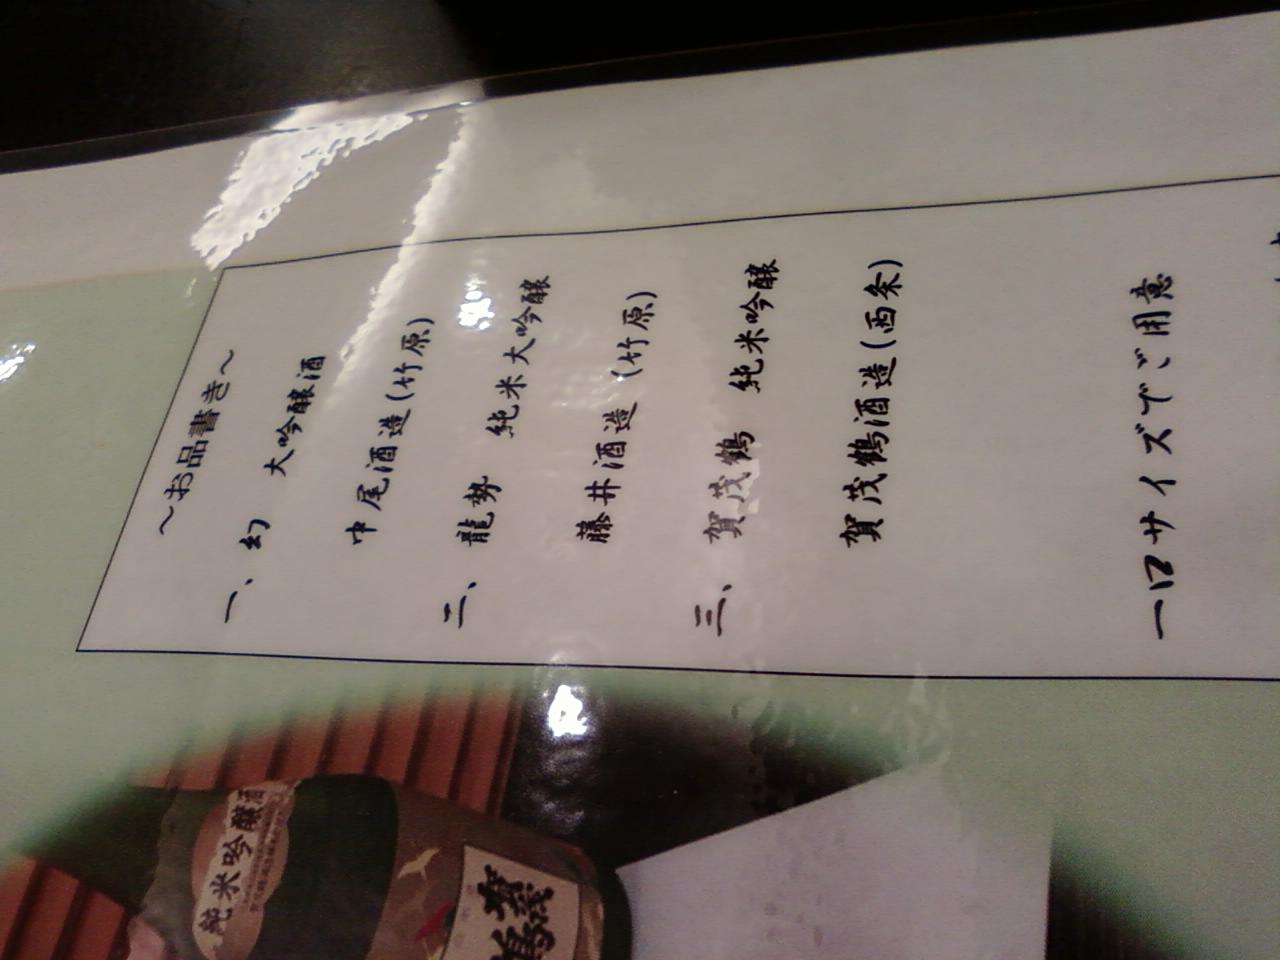 ～お品書き～
一、幻　大吟醸酒
中尾酒造(竹原)
二、龍勢　純米大吟醸
藤井酒造(竹原)
三、賀茂鶴　純米吟醸
賀茂鶴酒造(西条)
一口サイズでご用意
純米吟醸酒
賀茂鶴